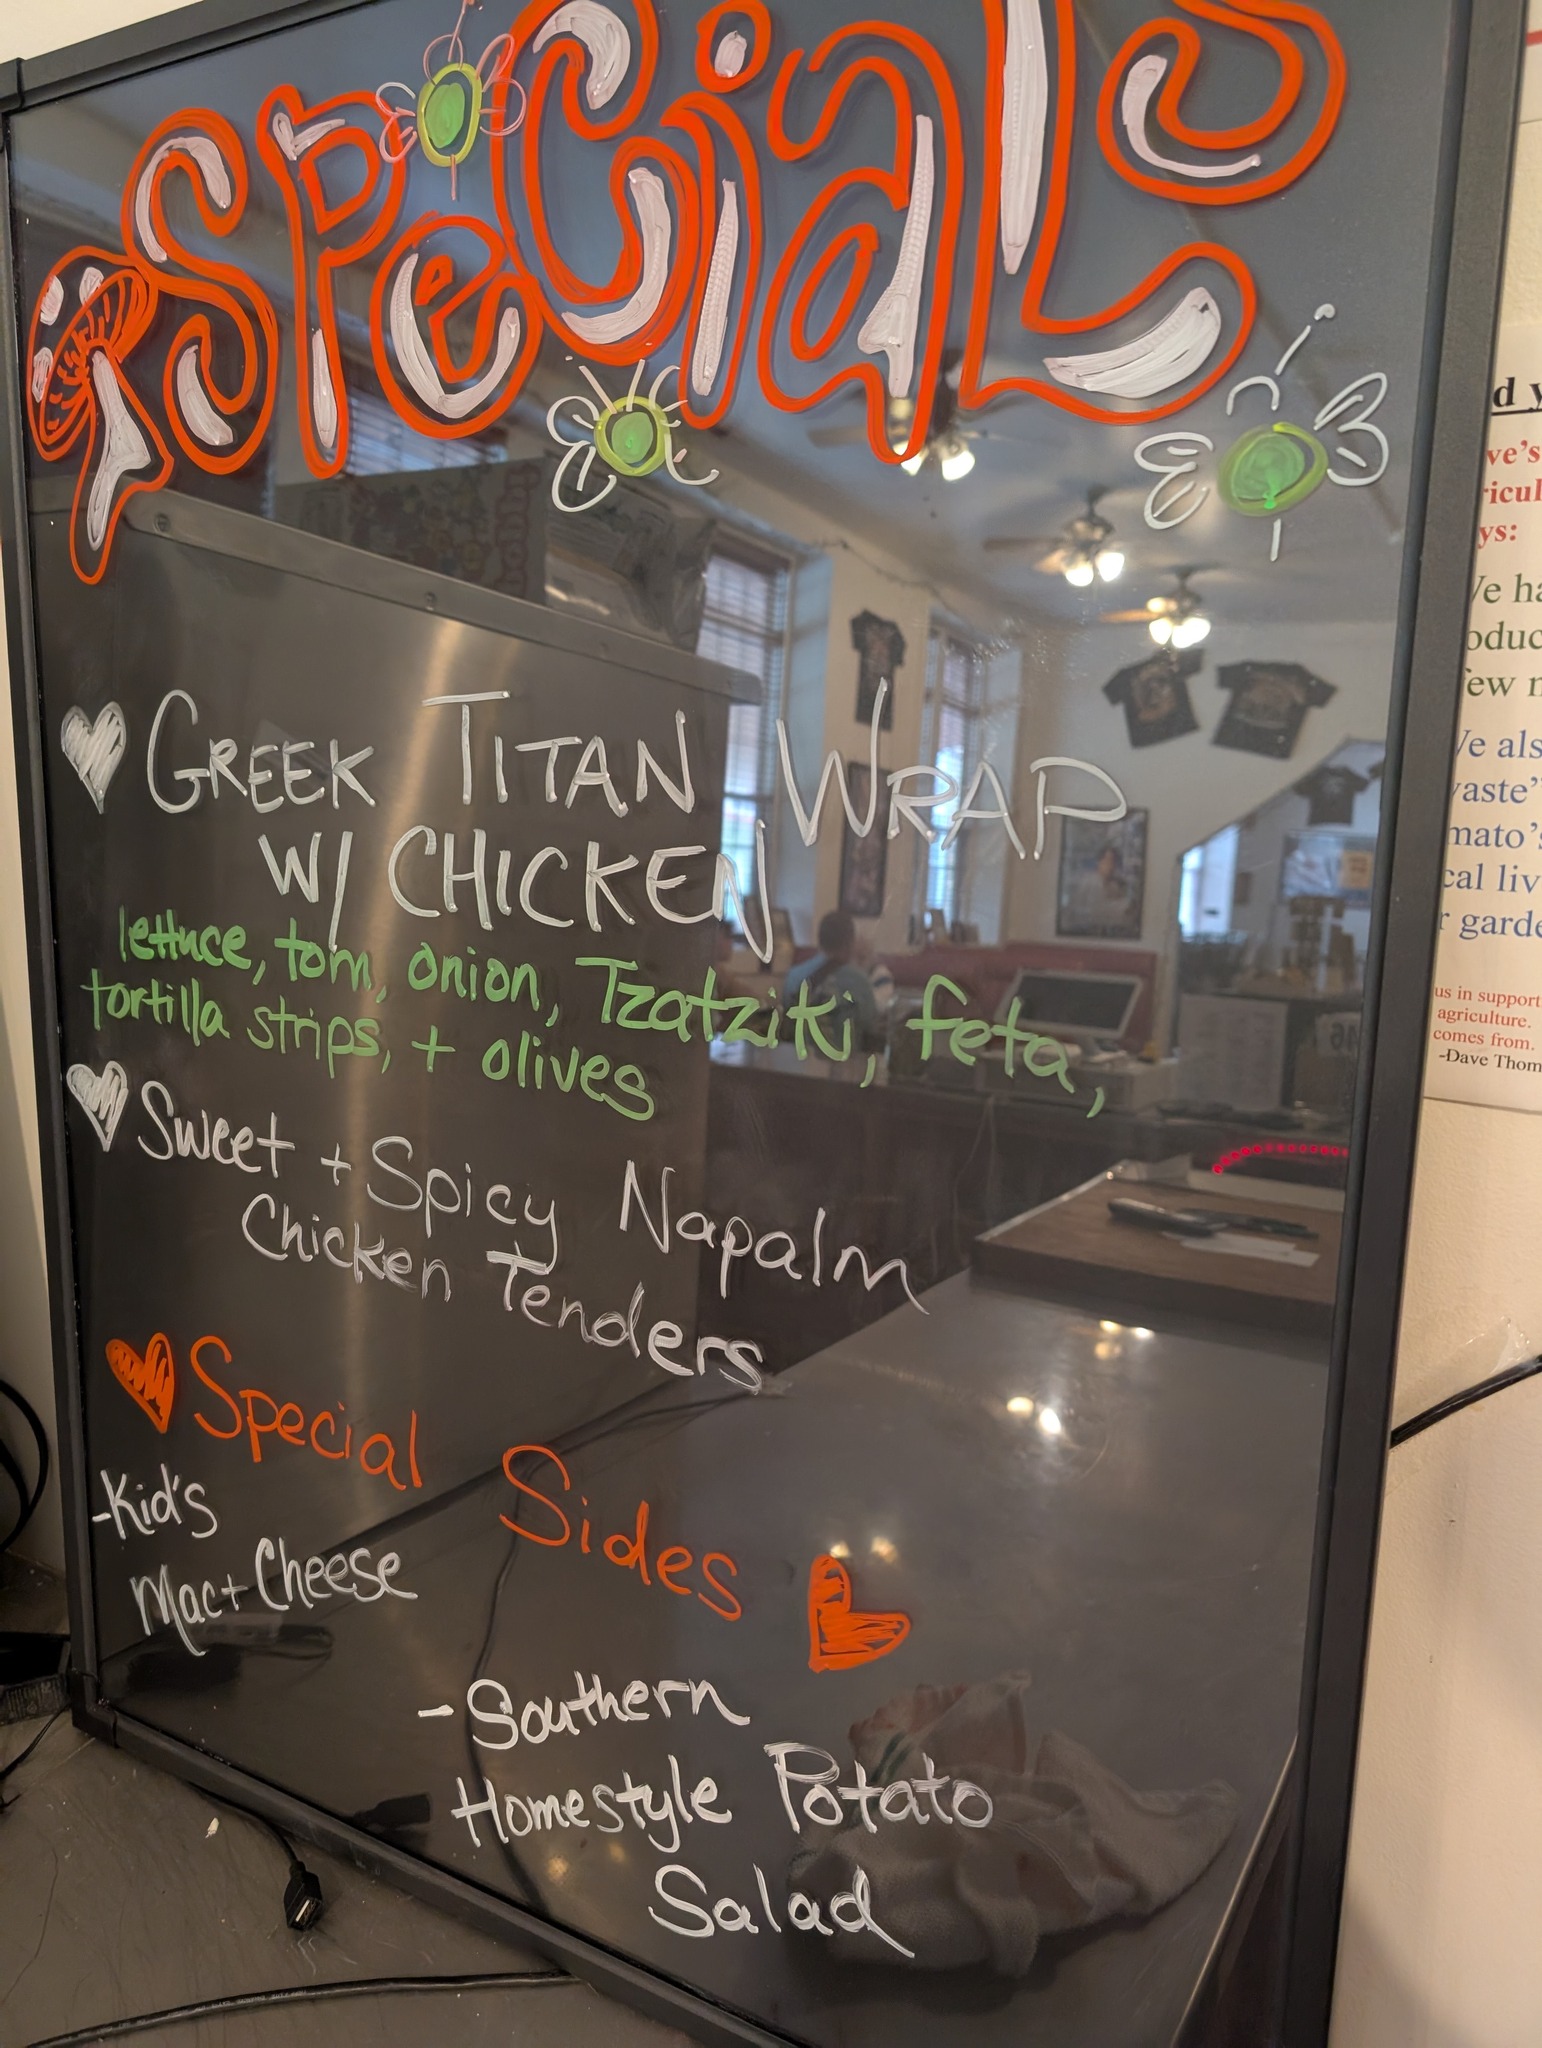 SPeCiaLS
GREEK TITAN WRAP
W/ CHICKEN
lettuce, tom, onion, Tzatziki, feta,
tortilla strips, + olives
Sweet + Spicy Napalm
Chicken Tenders
Special Sides
-Kid's
Mac + Cheese
-Southern
Homestyle Potato
Salad
d y
ve's
ricul
ys:
e ha
oduc
few m
e als
aste"
mato's
cal liv
garde
us in support
agriculture.
comes from.
-Dave Thom